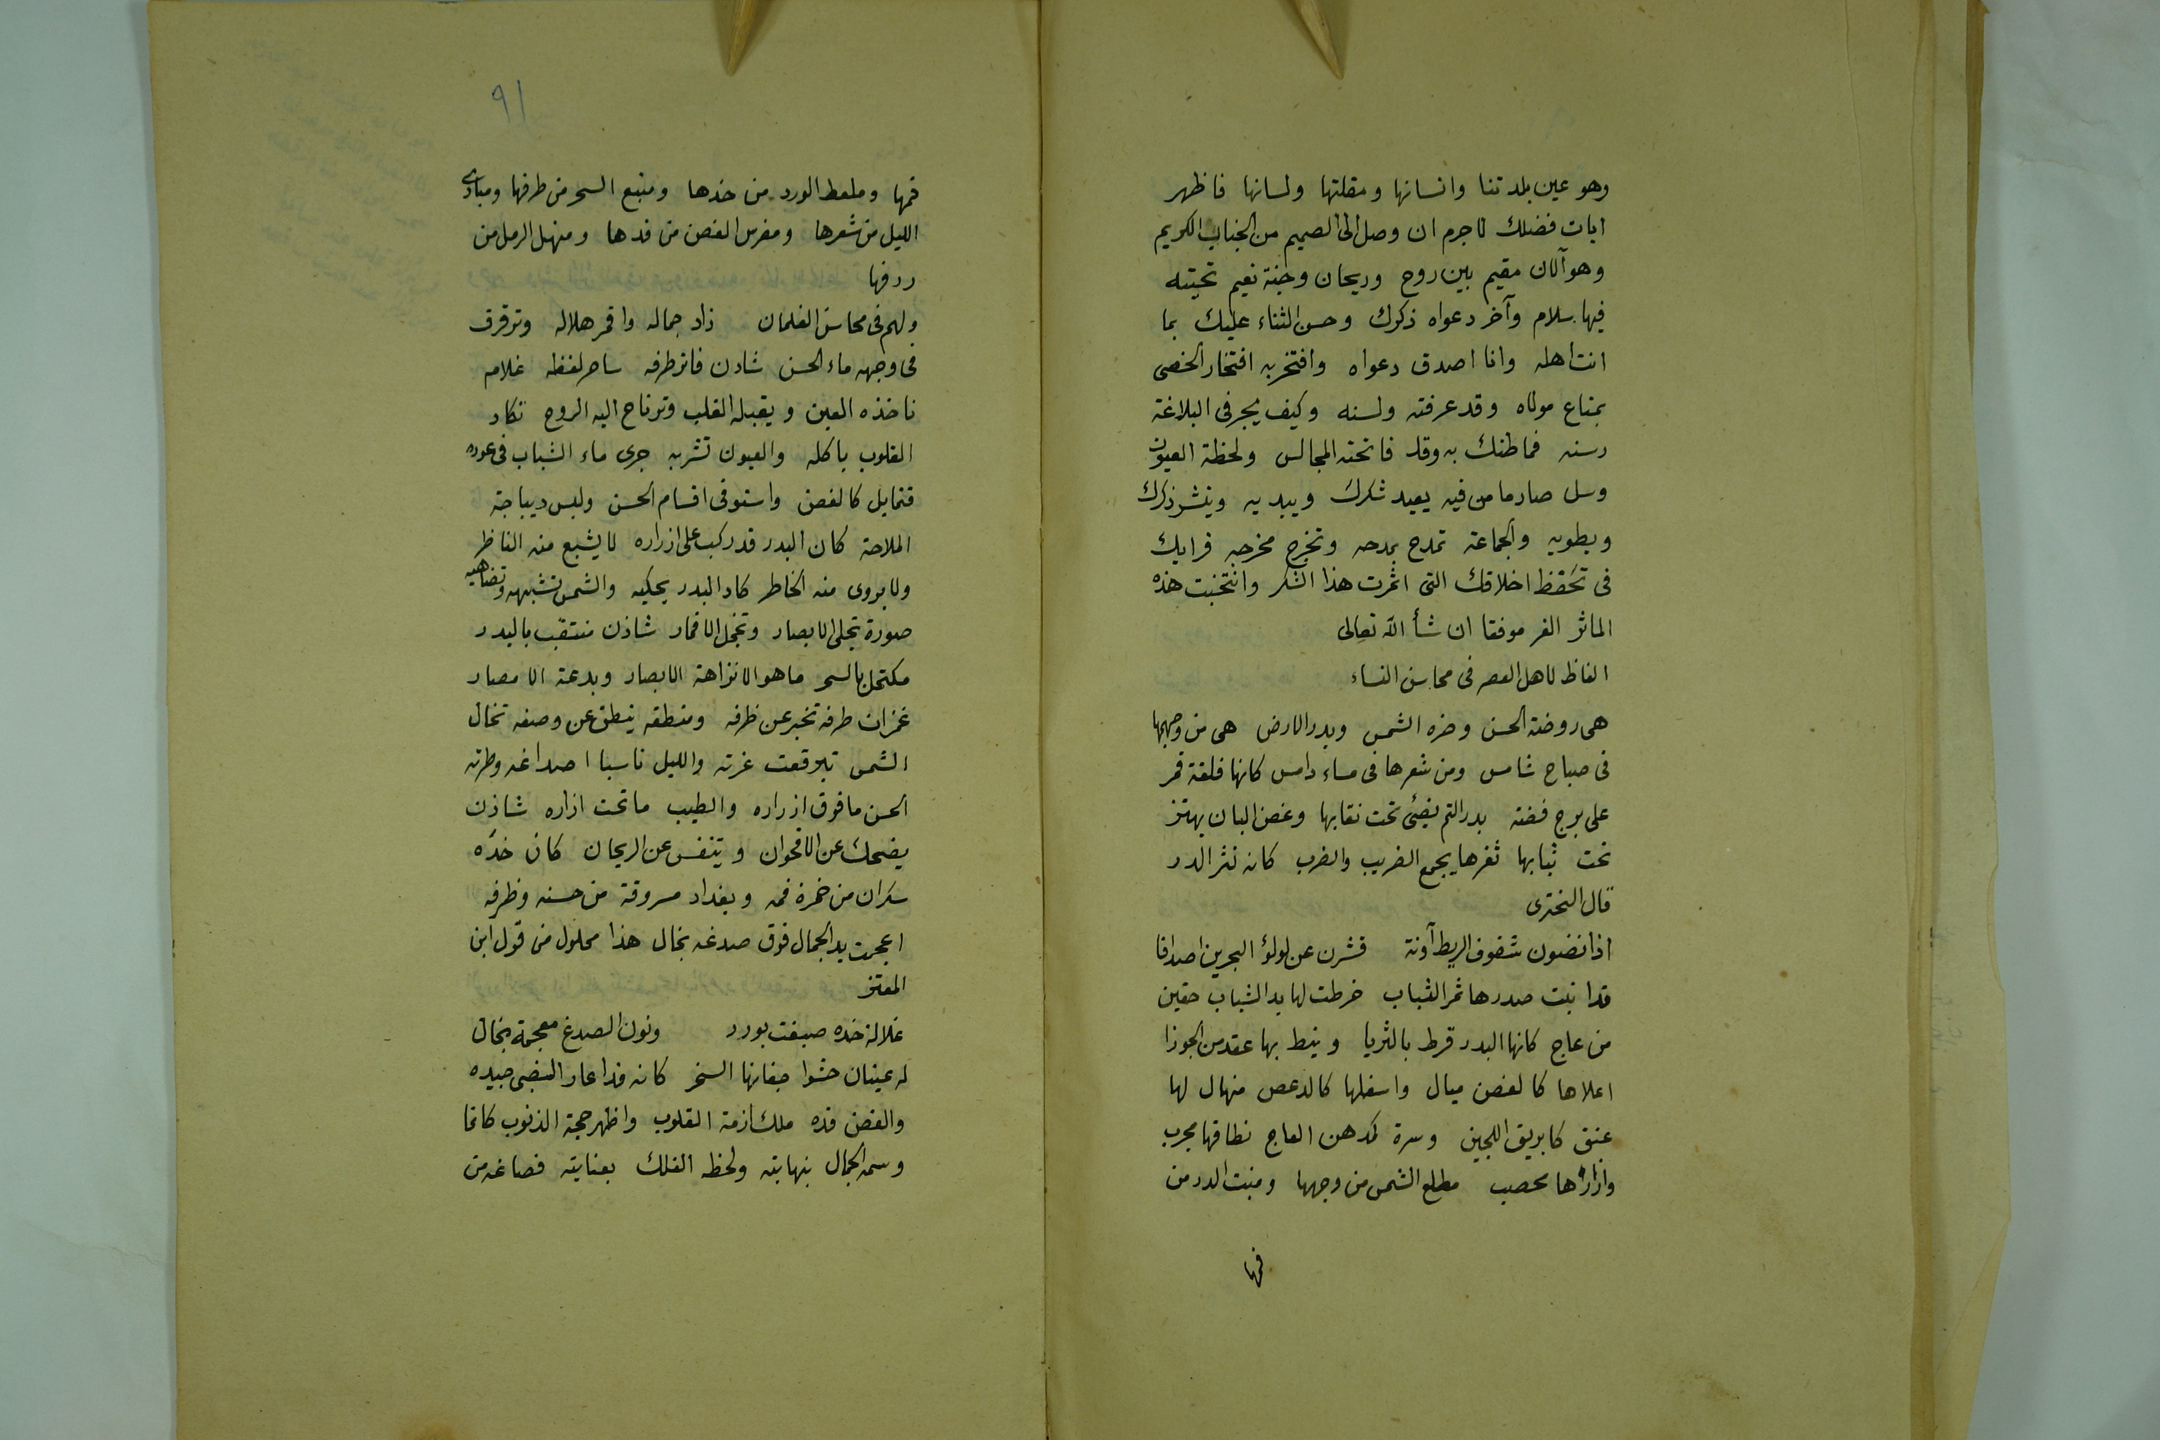 وهو عين بلدتنا وانسانها ومقلتها ولسانها فاظهر
ايات فضلك لا جرم ان وصل الى الصميم من الجناب الكريم
وهو آلان مقيم بين روح وريحان وجنة نعيم تحيته
فيها سلام وآخر دعواه ذكرك وحسن الثناء عليك بما
انت اهله وانا اصدق دعواه وافتخر به افتخار الخصى
بمتاع مولاه وقد عرفته ولسنه وكيف يجر فى البلاغة
رسنه فما ظنك به وقد فاتحته المجالس ولحظة العيون
وسل صارما من فيه يعيد شكرك ويبديه وينشر ذكرك
ويطويه والجماعة تمدح بمدحه وتخرج مخرجه فرايك
فى تحفظ اخلاقك التى اثمرت هذا الشكر وانتخبت هذه
الماثر الغر موفقا ان شأ الله تعالى
الفاظ لاهل العصر فى محاسن النساء
هى روضة الحسن وضره الشمس وبدر الارض هى من وجهها
فى صباح شامس ومن شعرها فى مساء دامس كانها فلقة قمر
على برج فضته بدر التم يضئ تحت نقابها وغصن البان يهتز
تحت ثيابها ثغرها يجمع الضريب والضرب كانه نثر الدر
قال البحترى
اذا نضون شفوف الريط آونة قشرن عن لولؤ البحرين اصدافا
قد انبت صدرها ثمر الشباب خرطت لها يد الشباب حقين
من عاج كانها البدر قرط بالثريا ونيط بها عقد من الجوزا
اعلاها كالغصن ميال واسفلها كالدعص منهال لها
عنق كابريق اللجين وسرة كمدهن العاج نطاقها مجرب
وازارها محصب مطلع الشمس من وجهها ومنبت الدر من
فمها
٩١
فمها وملعط الورد من خدها ومنبع السحر من طرفها ومبادى
الليل من شعرها ومغرس الغصن من قدها ومنهل الرمل من
ردفها
ولهم فى محاسن الغلمان زاد جماله واقمر هلاله وترقرق
فى وجهه ماء الحسن شادن فاتر طرفه ساحر لفظه غلام
ناخذه العين ويقبله القلب وترتاح اليه الروح تكاد
القلوب ياكله والعيون تشربه جرى ماء الشباب فى عوده
فتمايل كالغصن واستوفى اقسام الحسن ولبس ديباجة
الملاحة كان البدر قد ركب على ازراره لا يشبع منه الناظر
ولا يروى منه الخاطر كاد البدر يحكيه والشمس تشبهه وتضاهيه
صورة تجلى الابصار وتخجل الاقمار شاذن منتقب بالبدر
مكتحل بالسحر ما هو الا نزاهة الابصار وبدعة الامصار
غمزات طرفه تخبر عن ظرفه ومنطقه ينطق عن وصفه تخال
الشمس تبرقعت غرته والليل ناسبا اصداغه وطرته
الحسن ما فوق ازراره والطيب ما تحت ازاره شاذن
يضحك عن الاقحوان ويتنفس عن الريحان كان خده
سكران من خمرة فمه وبغداد مسروقة من حسنه وظرفه
اعجمت يد الجمال فوق صدغه بخال هذا محلول من قول ابن
المعتز
غلالة خده صبغت بورد ونون الصدغ معجمة بخال
له عينان حشوا جفانها السحر كانه قد اعار الضبى جيده
والغصن قده ملك ازمة القلوب واظهر حجة الذنوب كانما
وسمه الجمال بنهايته ولحظه الفلك بعنايته فصاغه من